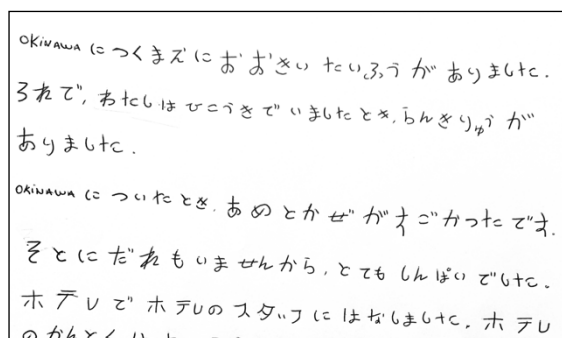 OKINAWA につくまえに おおきい たいふうが ありました.
それで, わたしは ひこうきで いましたとき, らんきりゅうが
ありました.
OKINAWA に ついたとき, あめとかぜがすごかったです.
そとに だれもいませんから, とても しんぱいでした.
ホテルで ホテルの スタッフに はなしました. ホテル